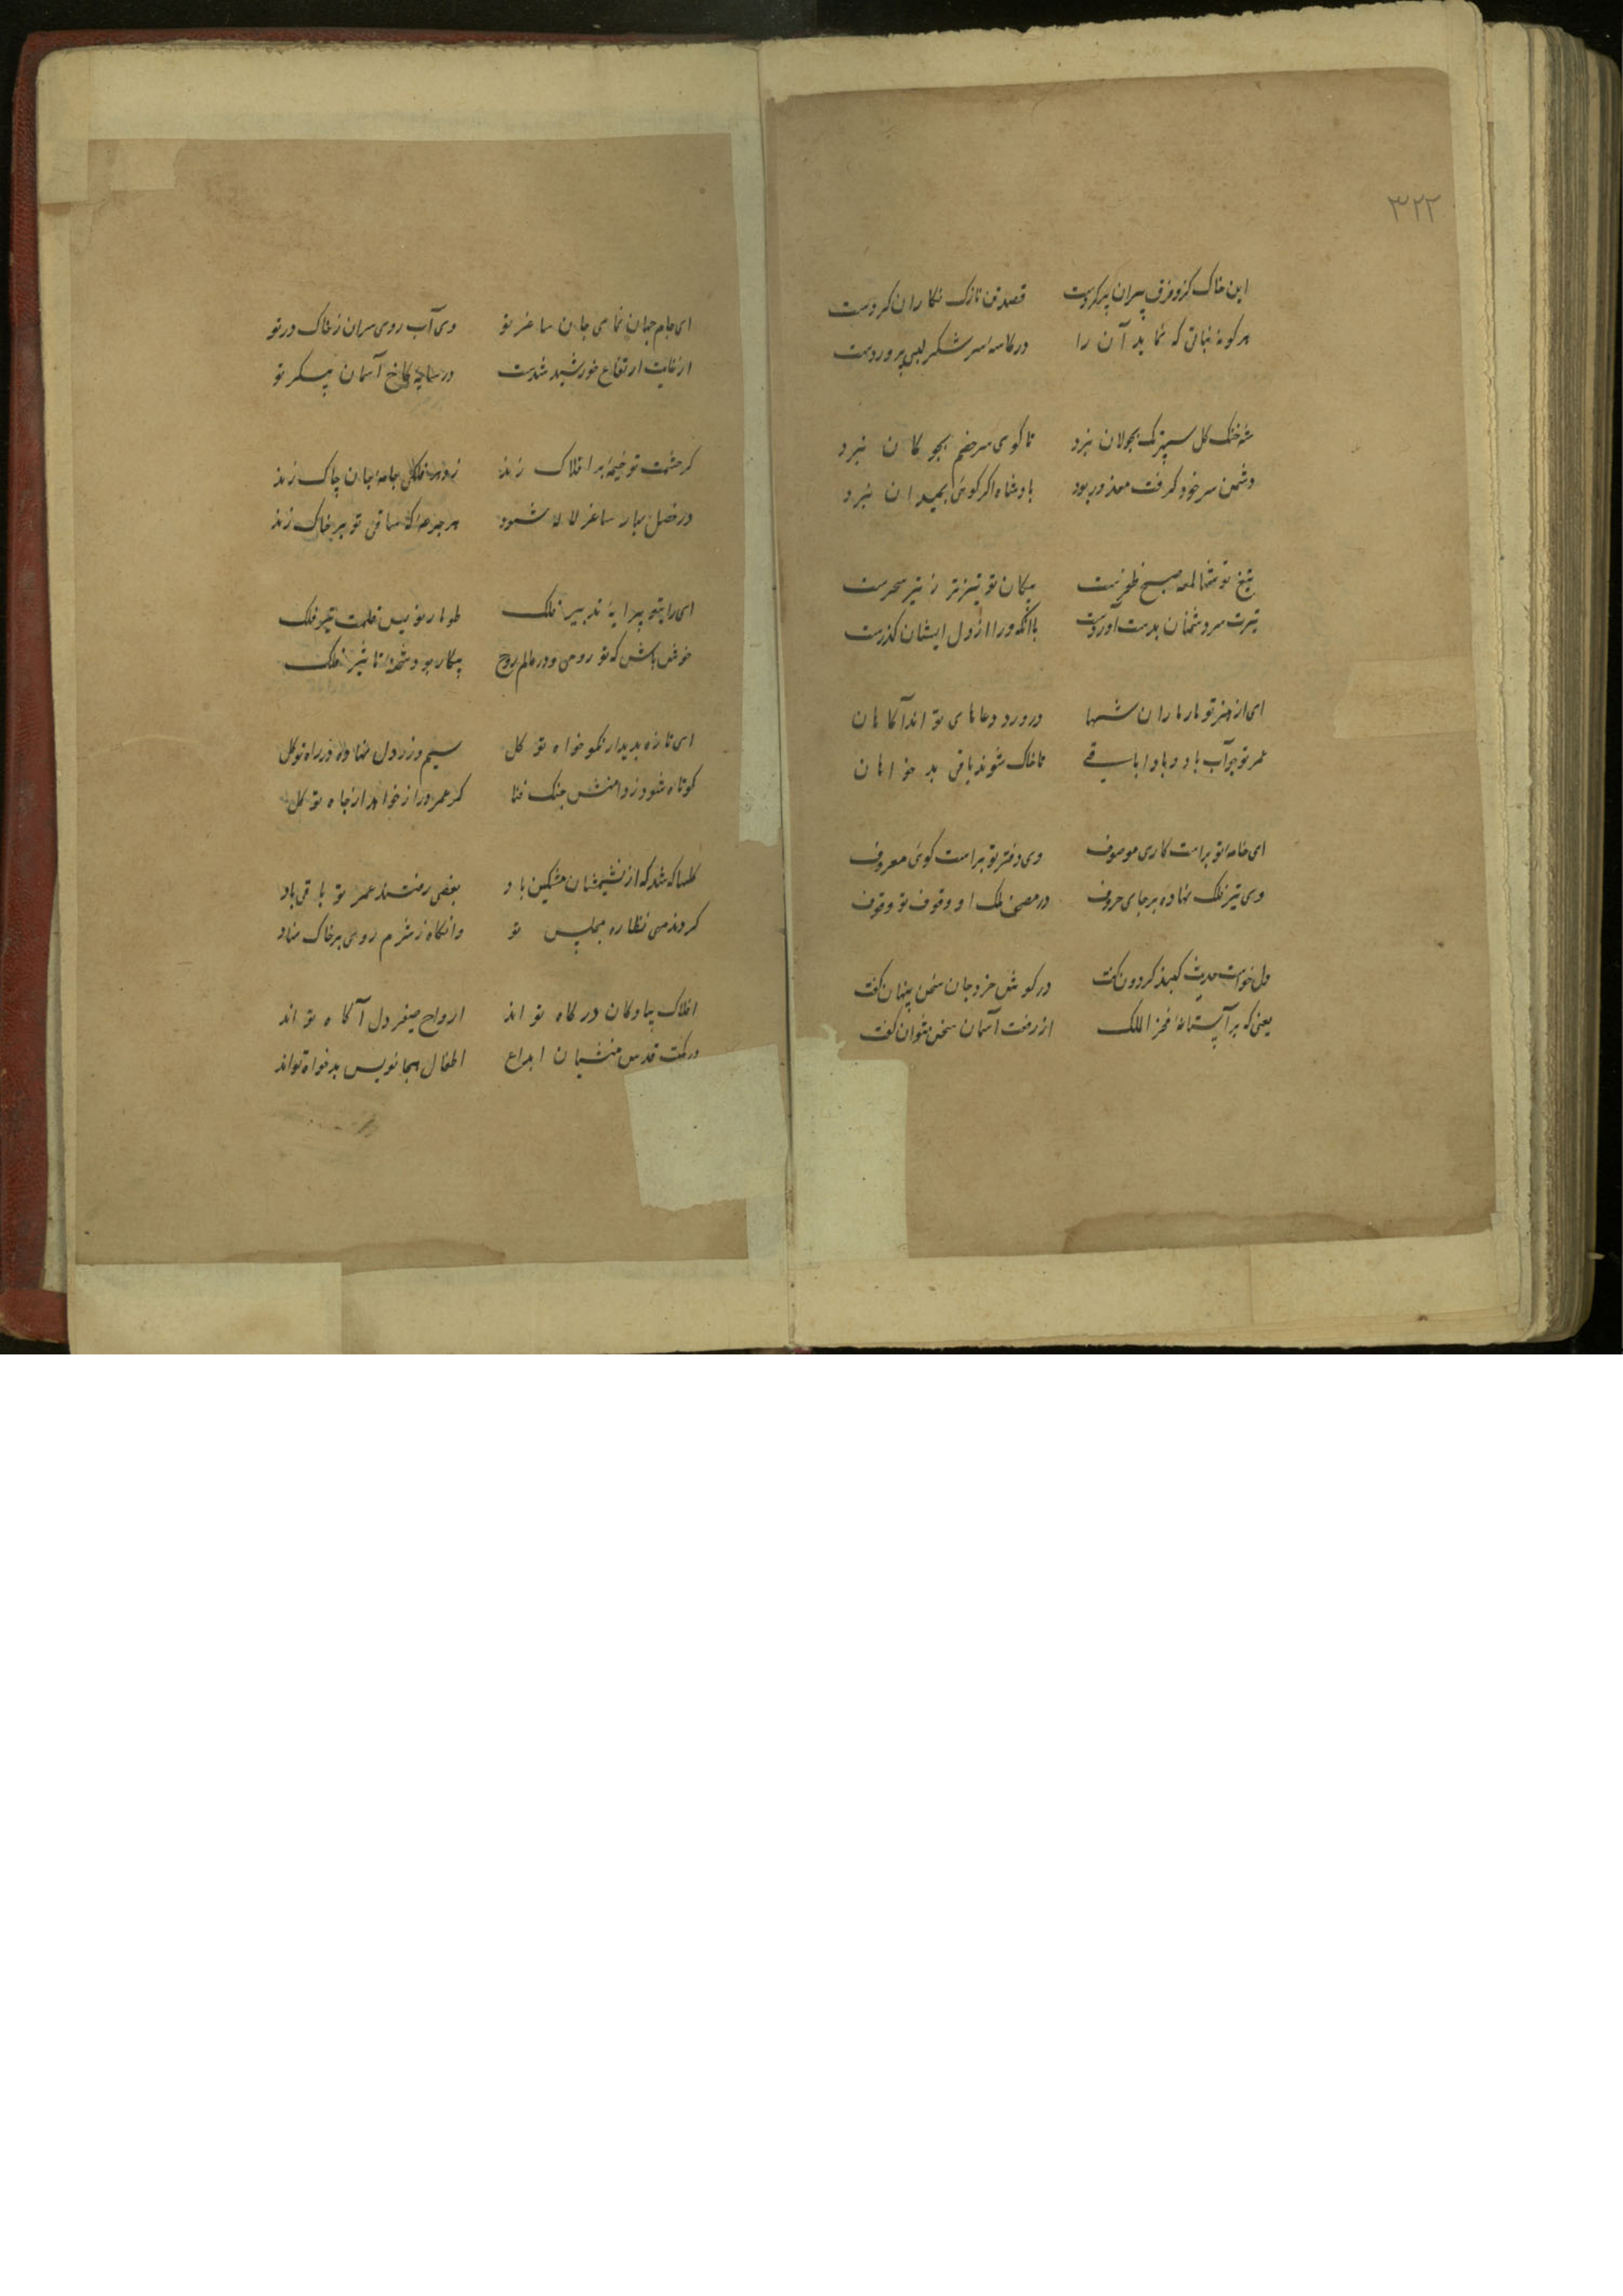 ۳۲۲
این خاک کزو فرق پسران پر کردست قصد تن نازک نکاران کردست
هر کونه نباتی که نماید آن را در کاسه سر شکر لبی پروردست
شه خنک کل بجولان نبرد تا کوی سر خصم بجوکان نبرد
دشمن سر خود کرفت معذور بود با وشاه اکر کوئی بمیدان نبرد
تیغ تو صبح ظفرست پیکان تو تیزتر ز تیر سحرست
تیرت سر دشمنان بدست آوردست با آنکه ورا از دل ایشان کذرست
ای از هنر تو ماه داران شبها در ورد دعاهای تو اند آکاهان
عمر تو چو آب باد و بادا باقی تا خاک شوند باقی بد خواهان
ای خامه تو براست کاری موصوف وی دفتر تو براست کوئی معروف
وی تیر فلک نهاده بر جای حروف در مصحف ملک او وقوف تو وقوف
دل خواست حدیث کنبد کردون کفت در کوش خرد جان سخن پنهان کفت
یعنی که بر آستانه فخر الملک از رفعت آسمان سخن نتوان کفت
ای جام جهان نمای جان ساغر تو وی آب روی سران ز خاک در تو
از غایت ارتفاع خورشید شدست در سایه کاخ آسمان پیکر تو
کر حشمت تو خیمه بر افلاک زند فلک جامه جان چاک زند
در فصل بهار ساغر لاله شود هر جرعه که ساقی تو بر خاک زند
ای رایتو پیرایه تدبیر فلک طومار نویس قلمت تیر فلک
خوش باش که تو روحی و در عالم روح بیکار بود شحنه تاثیر فلک
ای تازه بدیدار نکو خواه تو کل سیم و زر دل نهاده در راه تو کل
کوتاه شود ز دامنش چنک فنا کر عمر دراز خواهد از جاه تو کل
کلها که شد که از نشیمشان مشکین باد بعضی رفتند عمر تو باقی باد
کردند می نظاره مجلس تو وانکاه ز شرم روی بر خاک نهاد
افلاک پیادکان درکاه تو اند ارواح صفیر دل آکاه تو اند
در مکتب قدس منشیان ابداع اطفال هجا نویس بدخواه تواند